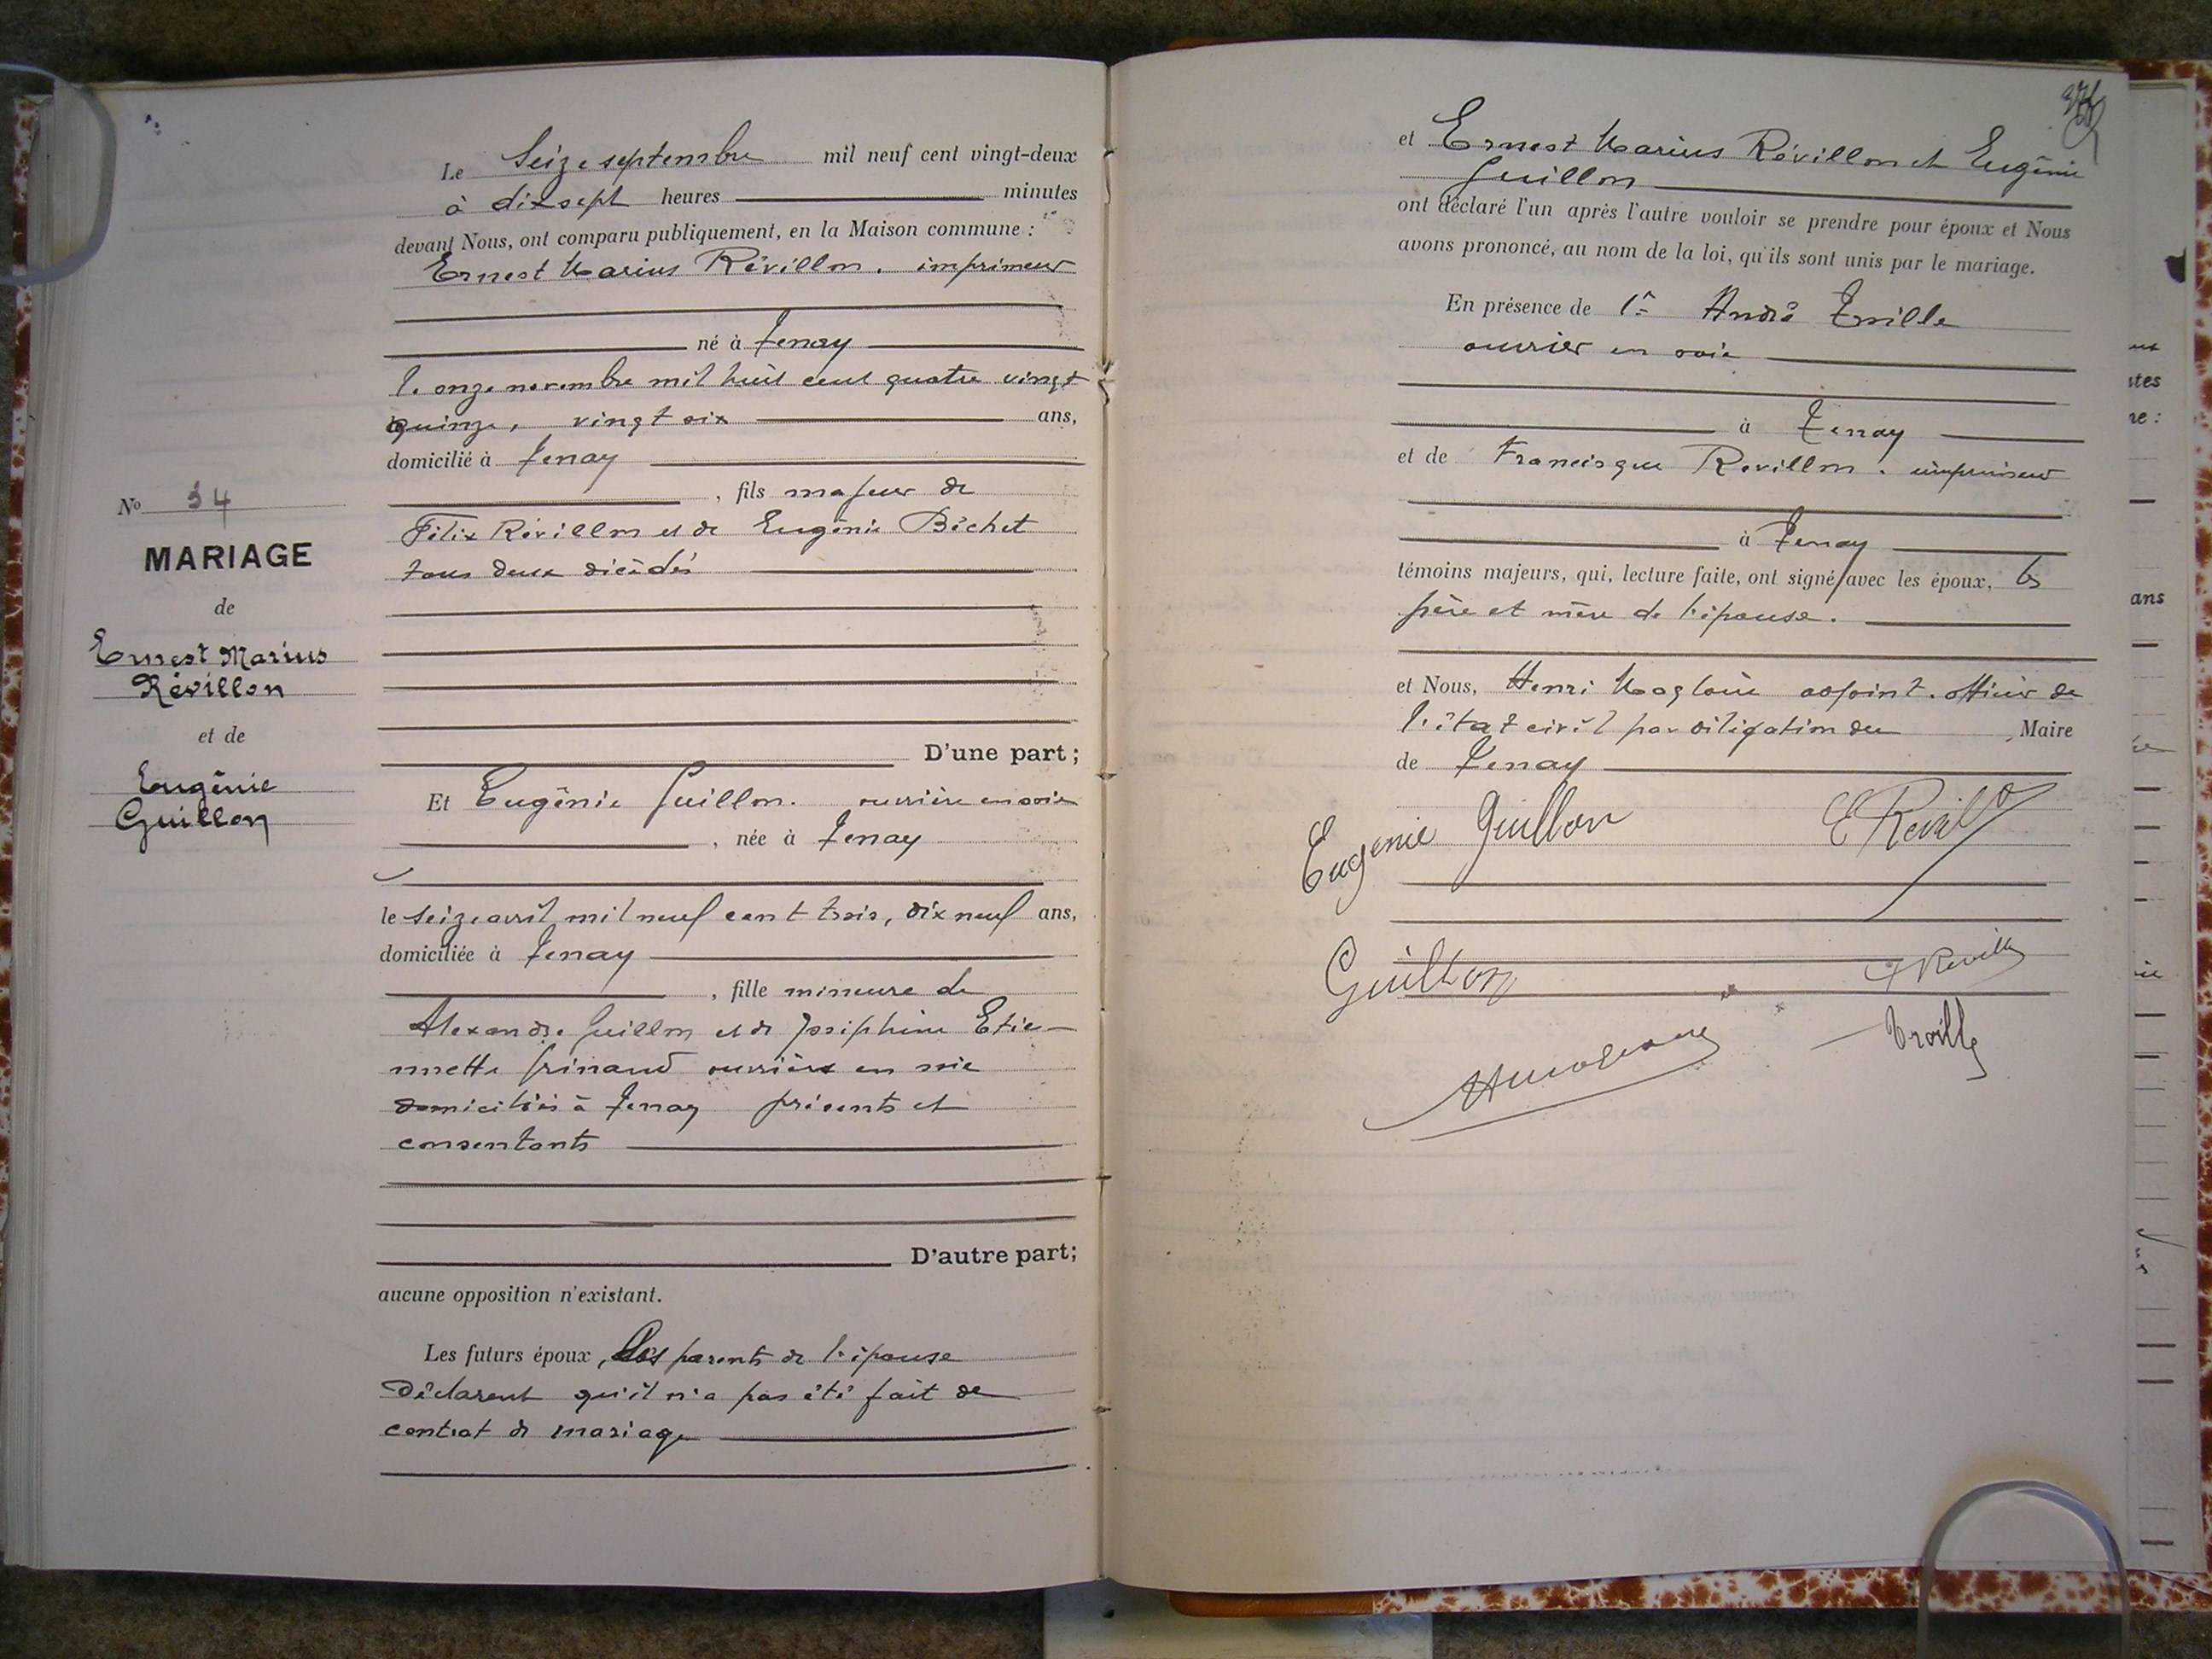 No 34
MARIAGE
de
Ernest Marius
Révillon
et de
Eugénie
Guillon
Le Seize septembre mil neuf cent vingt-deux
à dix sept heures minutes
devant Nous, ont comparu publiquement, en la Maison commune :
Ernest Marius Révillon, imprimeur
né à Tenay
le onze novembre mil huit cent quatre vingt
quinze, vingt six ans,
domicilié à Tenay
, fils majeur de
Félix Révillon et de Eugénie Béchet
tous deux décédés
D'une part ;
Et Eugénie Guillon, ouvrière en soie
, née à Tenay
le seize avril mil neuf cent trois, dix neuf ans,
domiciliée à Tenay
, fille mineure de
Alexandre Guillon et de Joséphine Etie-
nnette Grinand ouvriers en soie
domiciliés à Tenay présents et
consentants
D'autre part;
aucune opposition n'existant.
Les futurs époux, les parents de l'épouse
déclarent qu'il n'a pas été fait de
contrat de mariage
et Ernest Marius Révillon et Eugénie
Guillon
ont déclaré l'un après l'autre vouloir se prendre pour époux et Nous
avons prononcé, au nom de la loi, qu'ils sont unis par le mariage.
En présence de 1º André
ouvrier en soie
à Tenay
et de Francisque Revillon, imprimeur
à Tenay
témoins majeurs, qui, lecture faite, ont signé avec les époux, les
père et mère de l'épouse.
et Nous, Henri Magloire adjoint, officier de
l'état civil par délégation du Maire
de Tenay
Eugenie Guillon
Guillon